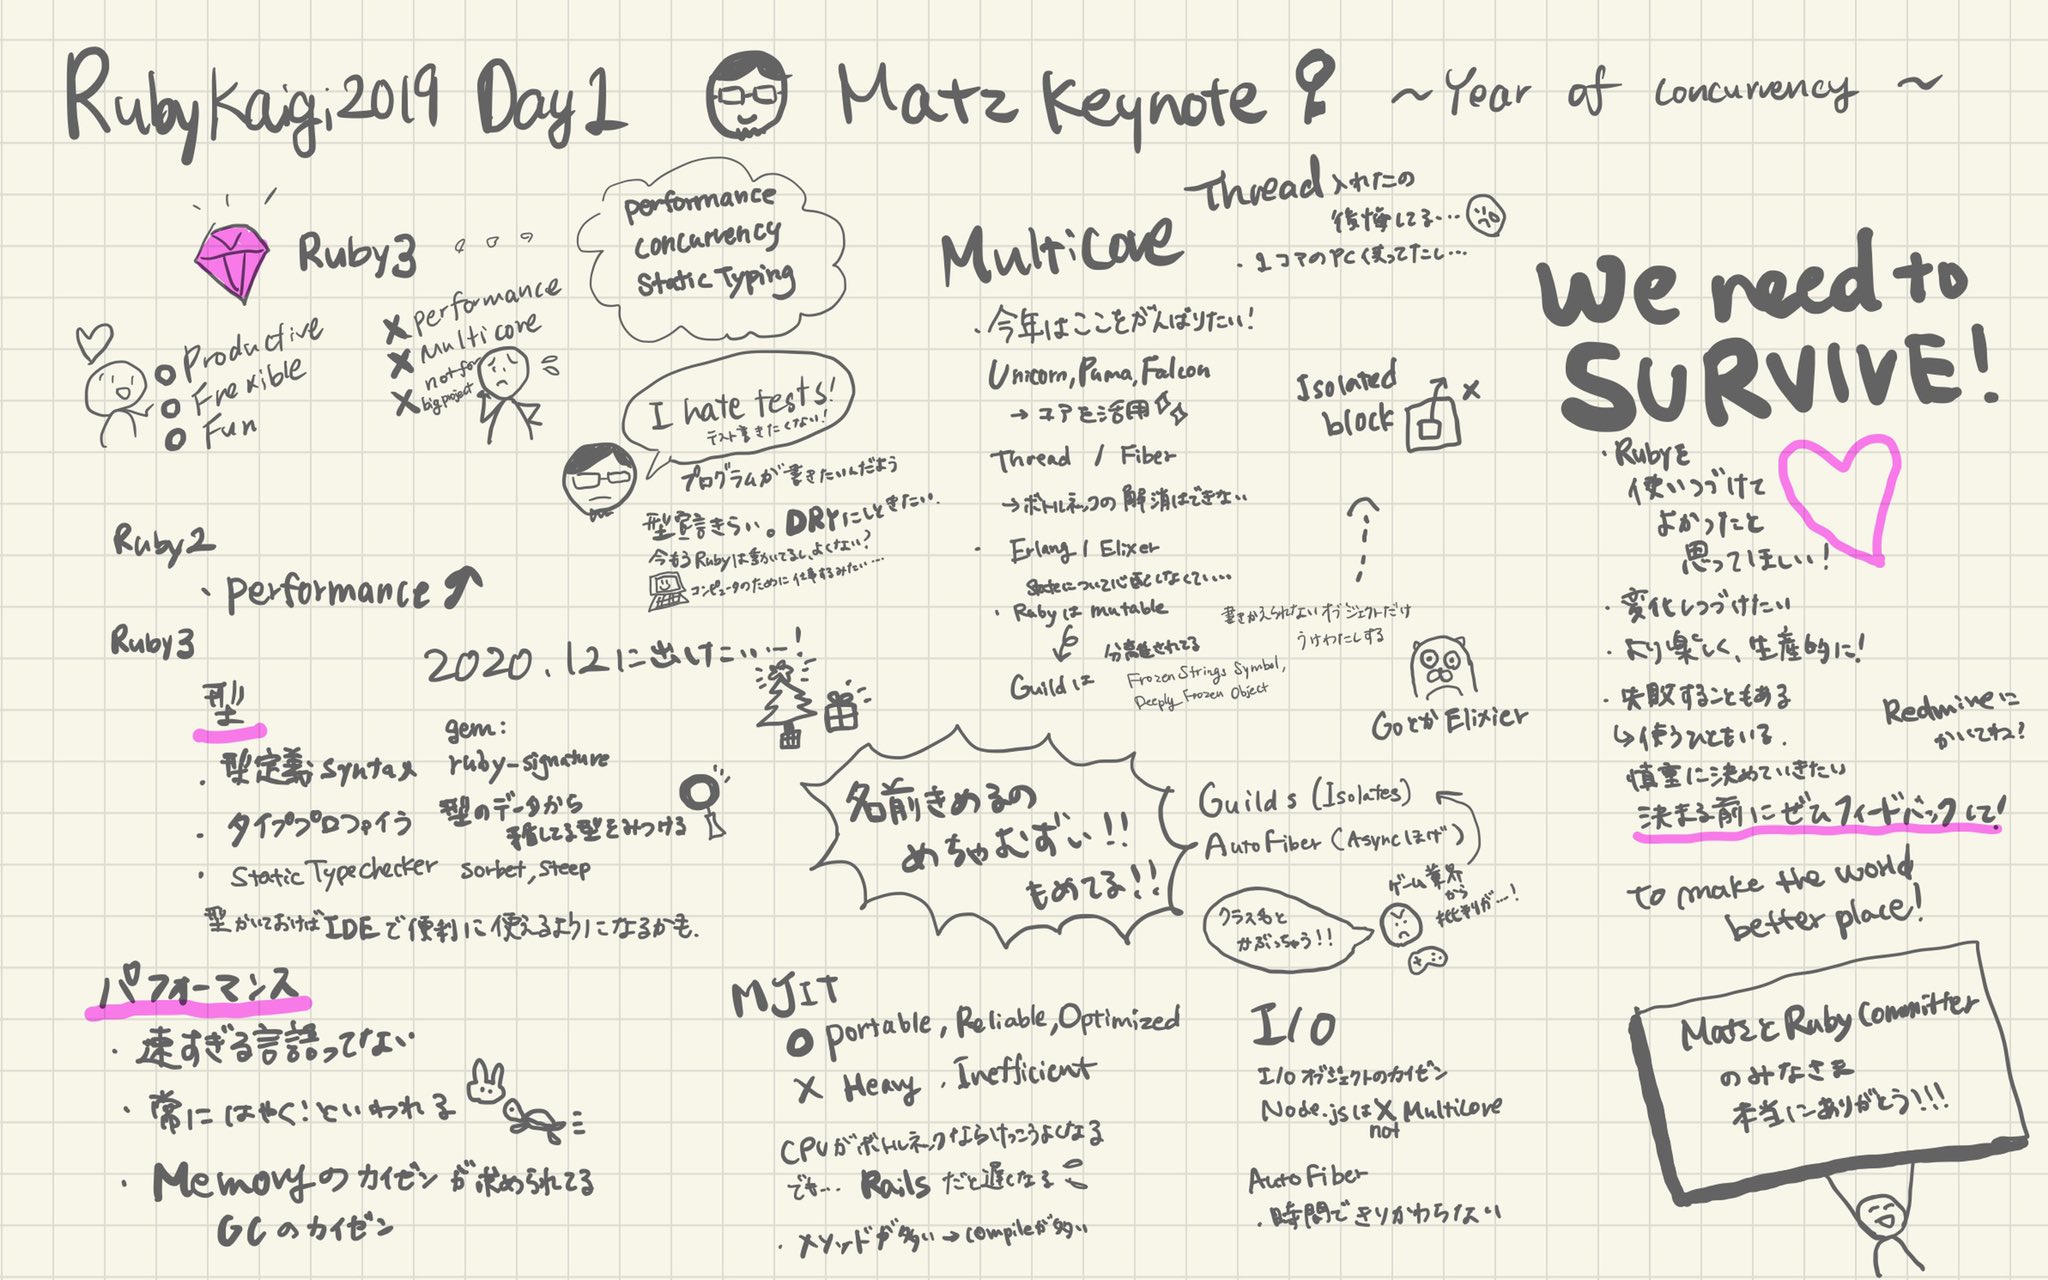 RubyKaigi2019 Day1 Matz Keynote ~Year of concurrency~
Ruby3
performance
concurrency
Static Typing
Productive
Frexible
Fun
performance
multi core
not for
big project
I hate tests!
テスト書きたくない!
プログラムが書きたいんだよう
型宣言きらい。DRYにしときたい.
今もうRubyは動いてるし、よくない?
コンピュータのために仕事するみたい…
Ruby2
・performance
Ruby3
2020.12に出したい…ー!
型
・型定義syntax
gem:
ruby-signature
・タイププロファイラ
型のデータから
矛盾してる型をみつける
・Static Typechecker
sorbet, steep
型かいておけばIDEで便利に使えるようになるかも.
パフォーマンス
・速すぎる言語ってない
・常にはやく!といわれる
・Memoryのカイゼンが求められてる
GCのカイゼン
Multicore
Thread入れたの
後悔してる…
・1コアのPC使ってたし…
・今年はここをがんばりたい!
Unicorn, Puma, Falcon
→コアを活用
Thread / Fiber
→ボトルネックの解消はできない
・Erlang / Elixer
stateについて心配しなくてい…
・Rubyは mutable
Guildは
分離されてる
Frozen Strings Symbol,
Deeply Frozen Object
書きかえられないオブジェクトだけ
うけわたしする
Isolated
block
GoとかElixier
名前きめるの
めちゃむずい!!
もめてる!!
Guilds (Isolates)
AutoFiber (Asyncほげ)
クラス名と
かぶっちゃう!!
ゲーム業界
から
批判が…!
MJIT
portable, Reliable, Optimized
Heavy, Inefficient
CPUがボトルネックならけっこうよくなる
でも… Railsだと遅くなる
・メソッドが多い→compileが多い
I/O
I/Oオブジェクトのカイゼン
Node.jsは✗Multicore
not
AutoFiber
・時間できりかわらない
We need to
SURVIVE!
・Rubyを
使いつづけて
よかったと
思ってほしい!
・変化しつづけたい
・より楽しく、生産的に!
・失敗することもある
↳使うひともいる.
慎重に決めていきたい
決まる前にぜひフィードバックして!
Redmineに
かいてね?
to make the world
better place!
MatzとRuby Committer
のみなさま
本当にありがとう!!!